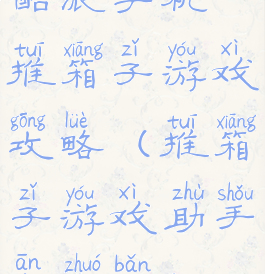 tuī xiāng zǐ yóu xì
推箱子游戏
gōng lüè tuī xiāng
攻略（推箱
zǐ yóu xì zhù shǒu
子游戏助手
ān zhuó bǎn